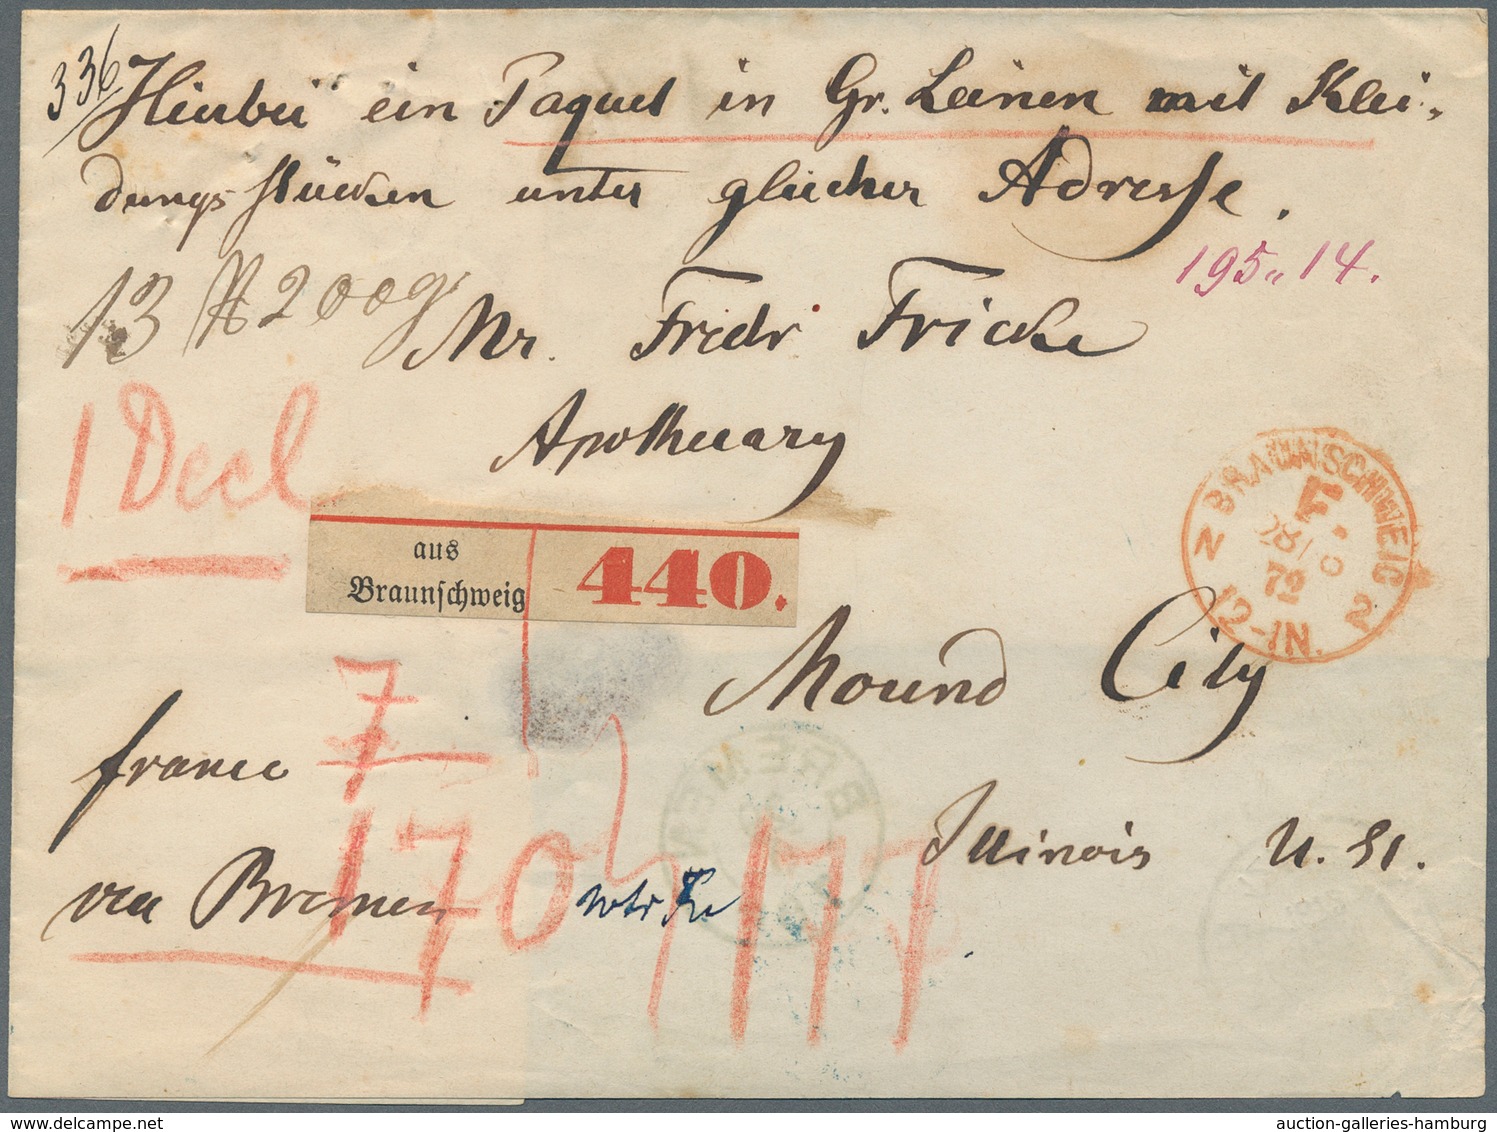 336
Hierbei ein Paquet in Gr. Leinen mit Klei-
dungsstücken unter gleicher Adresse.
195 " 14.
13 ℔ 200 g
Mr. Fredr Fricke
1 Decl
Apothecary
BRAUNSCHWEIG
F.
28/
72
12-1N.
2 2
aus
Braunschweig
440.
Mound City
7
franco
BREMEN
Illinois U. St.
170
via Bremen
delcampe.net
auction-galleries-hamburg